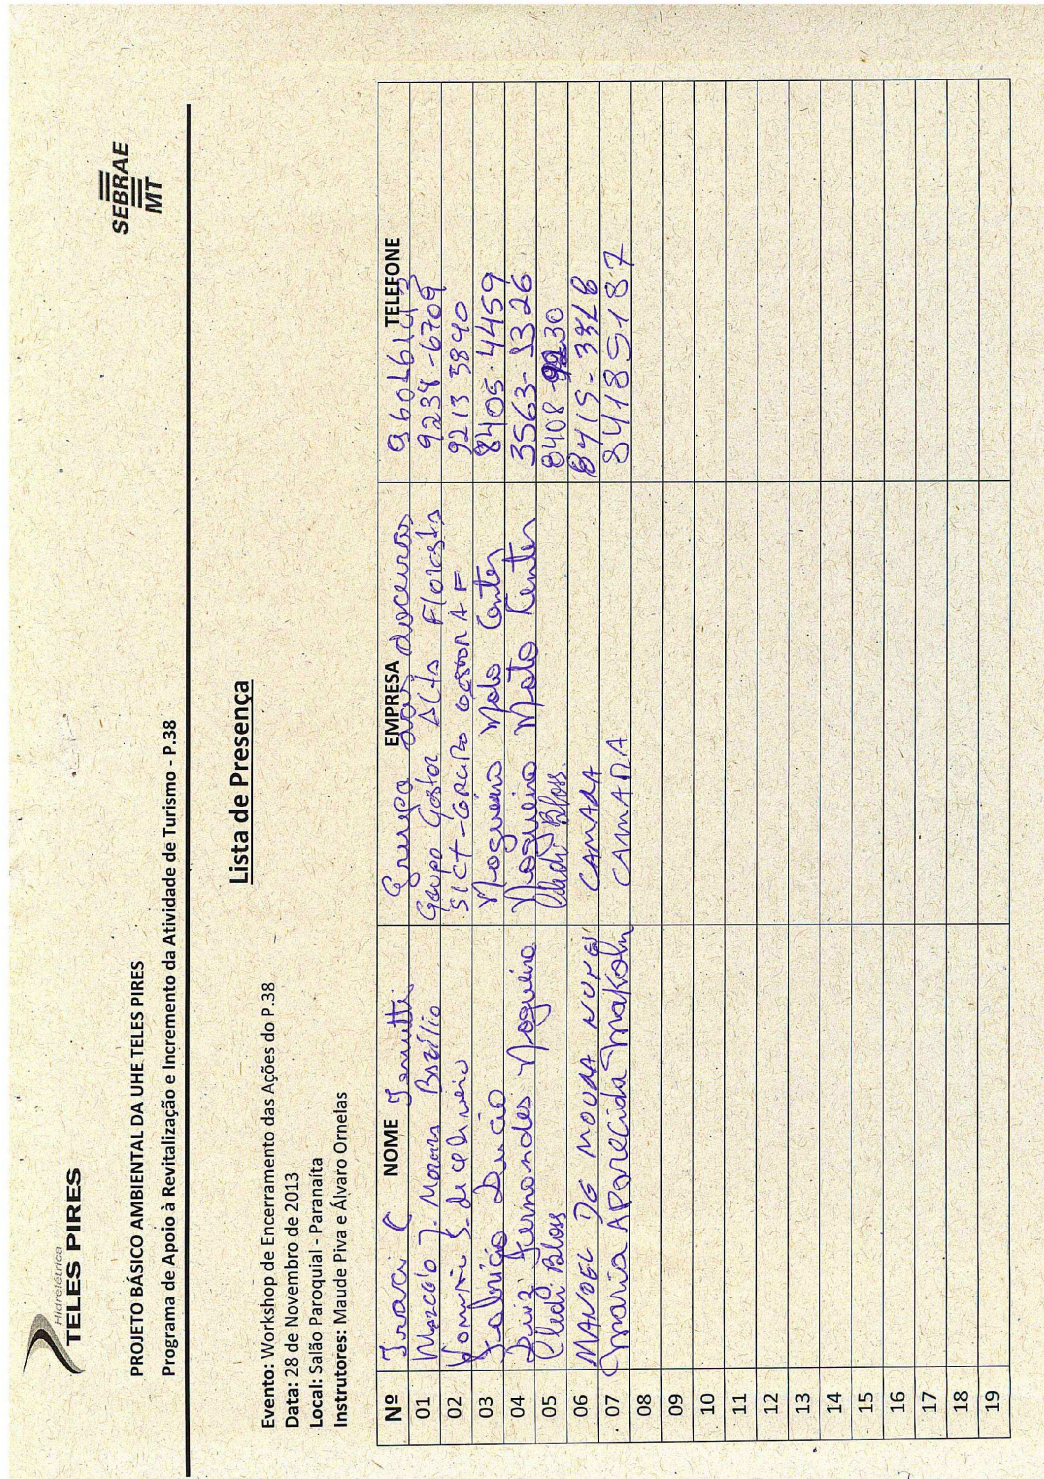 Hidrelétrica
TELES PIRES
SEBRAE
MT
PROJETO BÁSICO AMBIENTAL DA UHE TELES PIRES
Programa de Apoio à Revitalização e Incremento da Atividade de Turismo - P.38
Lista de Presença
Evento: Workshop de Encerramento das Ações do P.38
Data: 28 de Novembro de 2013
Local: Salão Paroquial - Paranaíta
Instrutores: Maude Piva e Álvaro Ornelas
Nº NOME EMPRESA TELEFONE
Iraci C Grupo
01 Marcelo J. Moraes Brazílio Grupo Gestor Alta Floresta 9234-6709
02 SICT-GRUPO GESTOR AF 9213 3840
03 Fabricio Nogueira Moto Center 8405-4459
04 Luiz Fernandes Nogueira Nogueira Moto Center 3563-1326
05 Cledi Bloss Cledi Bloss 8408
06 MANOEL DE MOURA CAMARA
07 Maria APARecida Makolm CAMARA 84189187
08
09
10
11
12
13
14
15
16
17
18
19